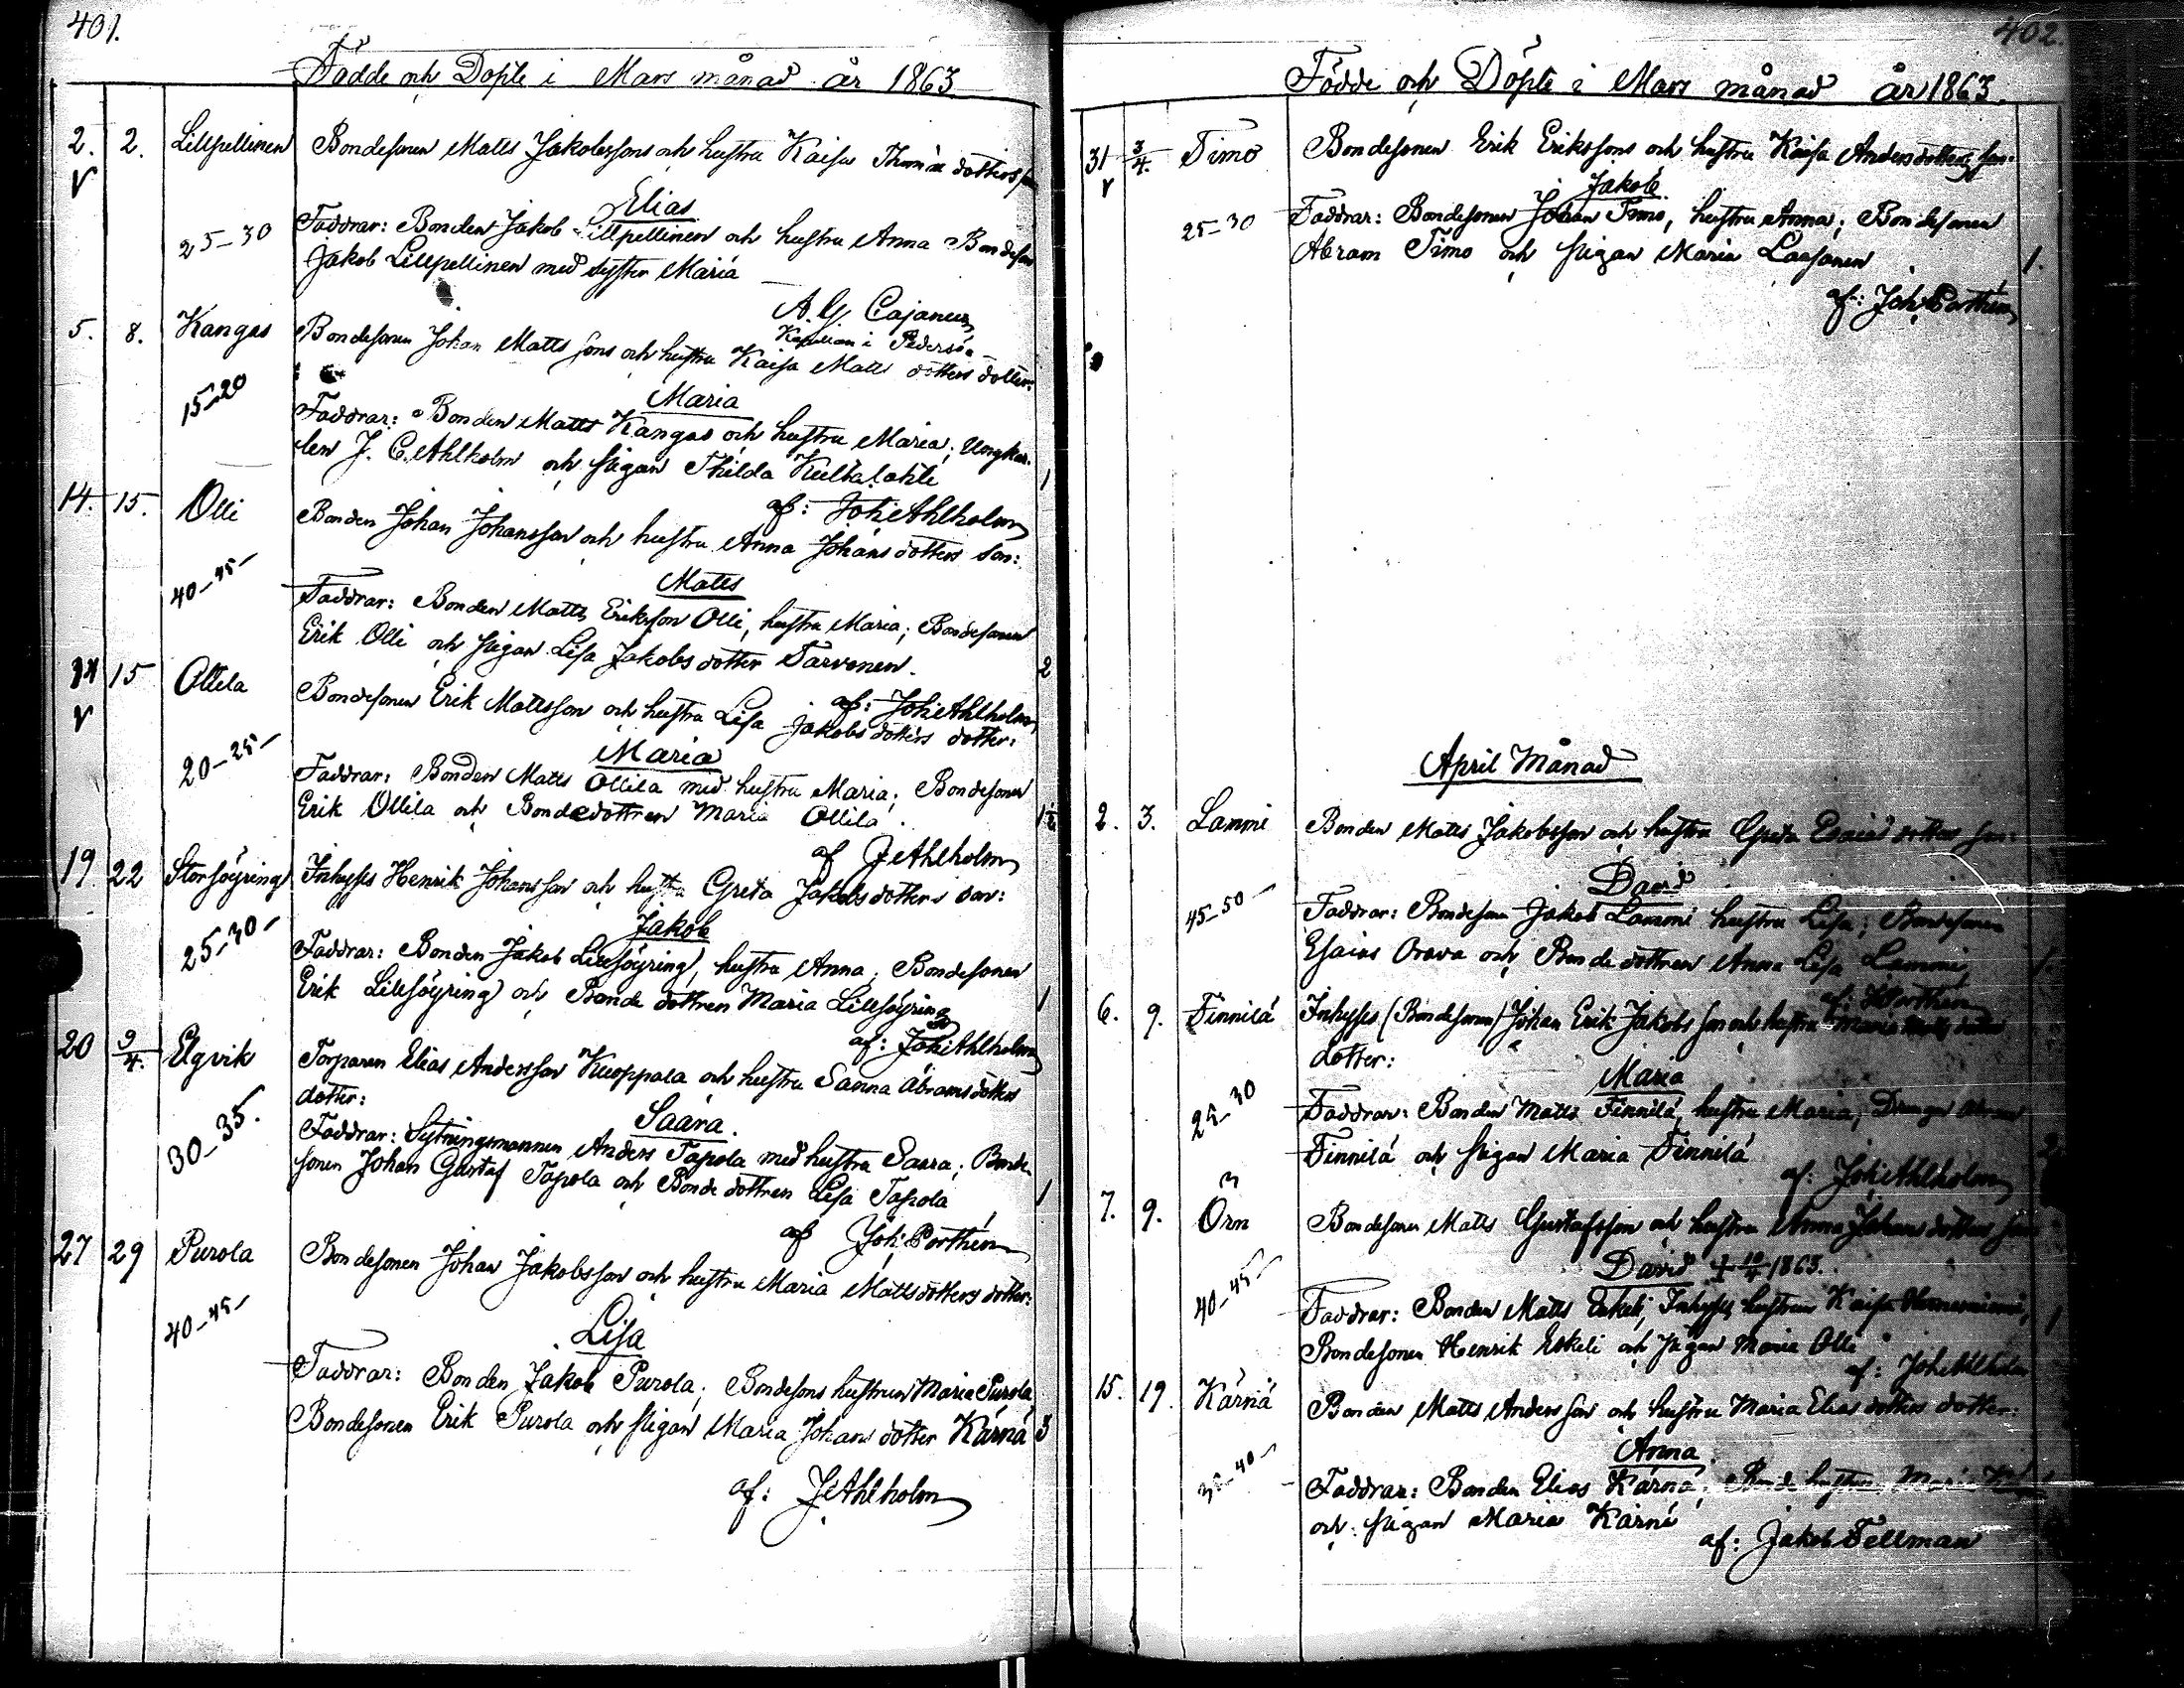 401.
Födde och Döpte i Mars månad år 1863.
2. 2. Lillpellinen Bondesonen Matts Jakobssons och hustru Kaisa Thomæ dotters son
Elias
25-30 Faddrar: Bonden Jakob Lillpellinen och hustru Anna Bondeson
Jakob Lillpellinen med syster Maria
A. G. Cajanus
Kapellan i Pedersö
5. 8. Kangas Bondesonen Johan Matts sons och hustru Kaisa Matts dotters dotter:
Maria
15-20 Faddrar: Bonden Matts Kangas och hustru Maria; Ungkar-
len J. C. Ahlholm och pigan Thilda
af: Joh: Ahlholm 1
14. 15. Olli Bonden Johan Johansson och hustru Anna Johans dotters son:
Matts
40-45- Faddrar: Bonden Matts Eriksson Olli, hustru Maria; Bondesonen
Erik Olli och pigan Lisa Jakobs dotter Tarvonen. 2
af: Joh: Ahlholm
14 15 Ollila Bondesonen Erik Mattsson och hustru Lisa Jakobs dotters dotter:
Maria
20-25- Faddrar: Bonden Matts Ollila med hustru Maria; Bondesonen
Erik Ollila och Bondedottren Maria Ollila.
af J Ahlholm
19. 22 Storsöyring Inhyses Henrik Johansson och hustru Greta Jakobs dotters son:
Jakob
25-30- Faddrar: Bonden Jakob Lillsöyring, hustru Anna; Bondesonen
Erik Lillsöyring och Bonde dottren Maria Lillsöyring 1
af: Joh: Ahlholm
20 9/4. Elgvik Torparen Elias Andersson Kuoppala och hustru Sanna Abrams dotters
dotter:
Saara.
30-35. Faddrar: Sytningsmannen Anders Tapola med hustru Saara; Bonde
sonen Johan Gustaf Tapola och Bonde dottren Lisa Tapola 1
af Joh: Porthén
27 29 Purola Bondesonen Johan Jakobsson och hustru Maria Matts dotters dotter:
Lisa
40-45- Faddrar: Bonden Jakob Purola; Bondesons hustrun Maria Purola,
Bondesonen Erik Purola och pigan Maria Johans dotter Kärnä 3
af: J Ahlholm
402.
Födde och Döpte i Mars månad år 1863.
31 3/4. Timo Bondesonen Erik Erikssons och hustru Kaisa Anders dotters son:
Jakob
25-30 Faddrar: Bondesonen Johan Timo, hustru Anna; Bondesonen
Abram Timo och pigan Maria Laasanen 1.
af: Joh: Porthén
April Månad
2. 3. Lammi Bonden Matts Jakobsson och hustru Greta Esaias dotters son:
David
45-50- Faddrar: Bondeson Jakob Lammi hustru Lisa; Bondesonen
Esaias Orava och Bonde dottren Anna Lisa Lammi
af: Porthén
6. 9. Finnilä Inhyses (Bondesonen) Johan Erik Jakobs son och hustru Maria Matts
dotter:
Maria
25-30 Faddrar: Bonden Matts Finnilä, hustru Maria; Drengen Abram
Finnilä och pigan Maria Finnilä 2
af: Joh: Ahlholm
7. 9. Örn Bondesonen Matts Gustafsson och hustru Anna Johans dotters son
David † 10/4 1863.
40-45- Faddrar: Bonden Matts Eskeli, Inhyses hustrun Kaisa
Bondesonen Henrik Eskeli och pigan Maria Olli
af: Joh: Ahlholm
15. 19. Kärnä Bonden Matts Andersson och hustru Maria Elias dotters dotter:
Anna
Faddrar: Bonden Elias Kärnä; Bonde hustrun Maria
och pigan Maria Kärnä
af: Jakob Fellman